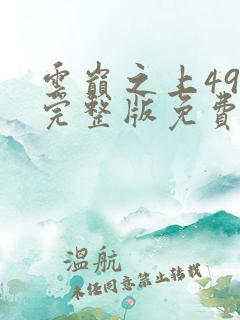 雲巔之上49
完整版免費
溫航
未任同意禁止转载